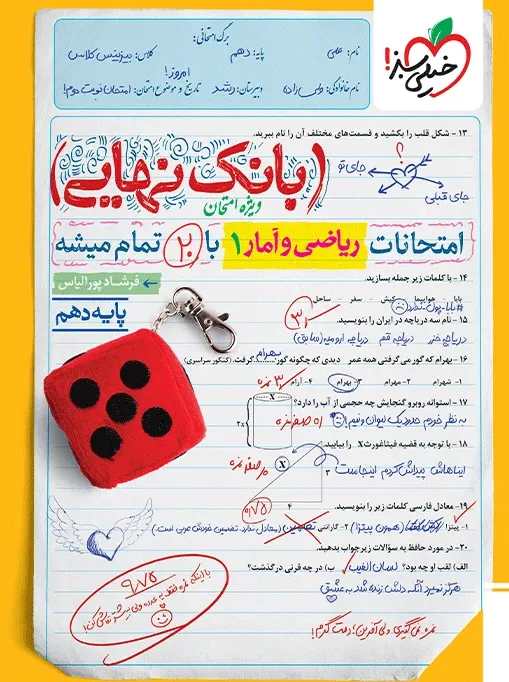 خیلی سبز!
برگ امتحانی:
نام: علی
پایه: دهم
کلاس: بیزینس کلاس
امروز!
نام خانوادگی: ولی‌زاده
دبیرستان: رشد
تاریخ و موضوع امتحان: امتحان نوبت دوم!
۱۳ - شکل قلب را بکشید و قسمت‌های مختلف آن را نام ببرید.
؟
جای تو
جای قبلی
(بانک نهایی)
ویژه امتحان
امتحانات ریاضی و آمار ۱ با ۲۰ تمام میشه
فرشاد پورالیاس
پایه دهم
۱۴ - با کلمات زیر جمله بسازید.
بابا - هواپیما - کیش - سفر - ساحل
#بابا-پول-ندارد
۱۵ - نام سه دریاچه در ایران را بنویسید.
دریاچه خزر دریاچه قم دریاچه ارومیه (سابق)
۱۶ - بهرام که گور می‌گرفتی همه عمر دیدی که چگونه گور بهرام گرفت. (کنکور سراسری)
۱- شهرام ۲- مهرام ۳- بهرام ۴- آرام
۱۷ - استوانه روبرو گنجایش چه حجمی از آب را دارد؟
به نظر خودم حدود یک لیوان و نیم!
x
۲x
۱۸ - با توجه به قضیه فیثاغورث x را بیابید.
ایناهاش پیداش کردم اینجاست
x
۳
۴
۱۹ - معادل فارسی کلمات زیر را بنویسید.
۱- پیتزا (همون پیتزا) ۲- گارانتی تضمین (معادل ندارد. تضمین خودش عربی است.)
۲۰ - در مورد حافظ به سؤالات زیر جواب بدهید.
الف) لقب او چه بود؟ لسان الغیب ب) در چه قرنی درگذشت؟
هرگز نمیرد آنکه دلش زنده شد به عشق
۹/۷۵
نمره نمی‌گیری ولی آفرین؛ دمت گرم!